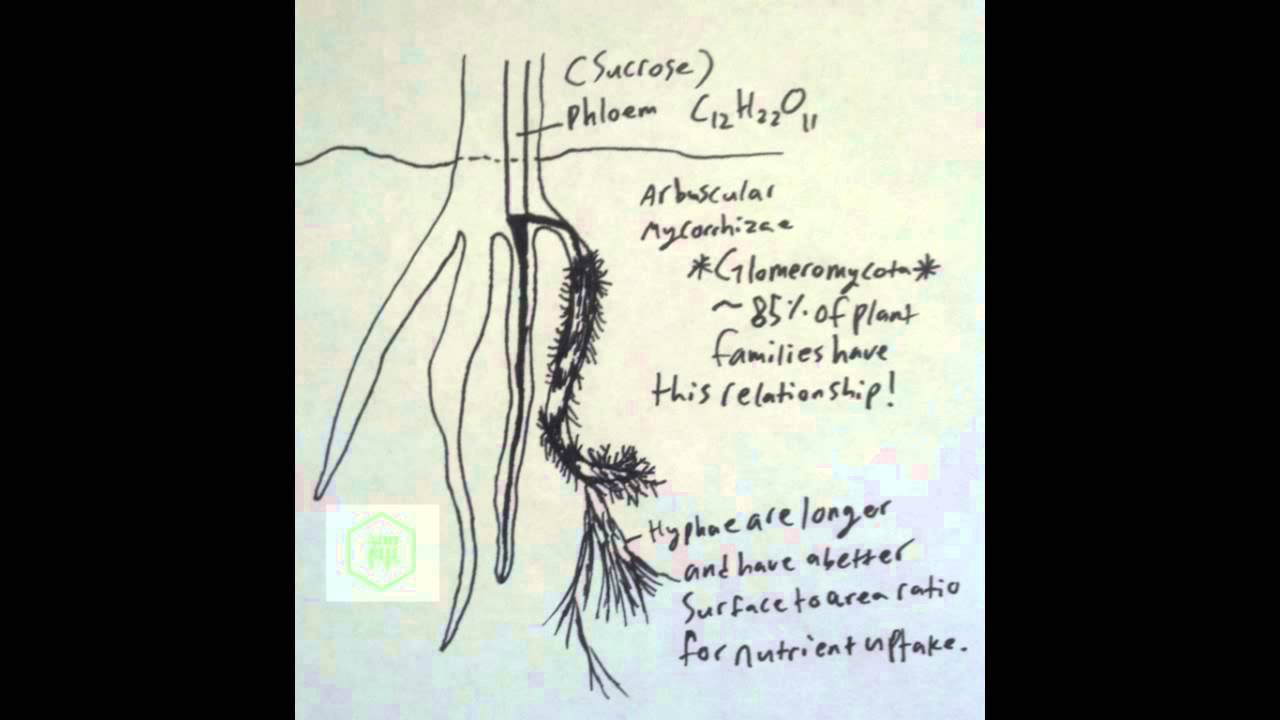 (Sucrose)
Phloem C₁₂H₂₂O₁₁
Arbuscular
Mycorrhizae
*Glomeromycota*
~ 85% of plant
families have
this relationship!
Hyphae are longer
and have a better
Surface to area ratio
for nutrient uptake.